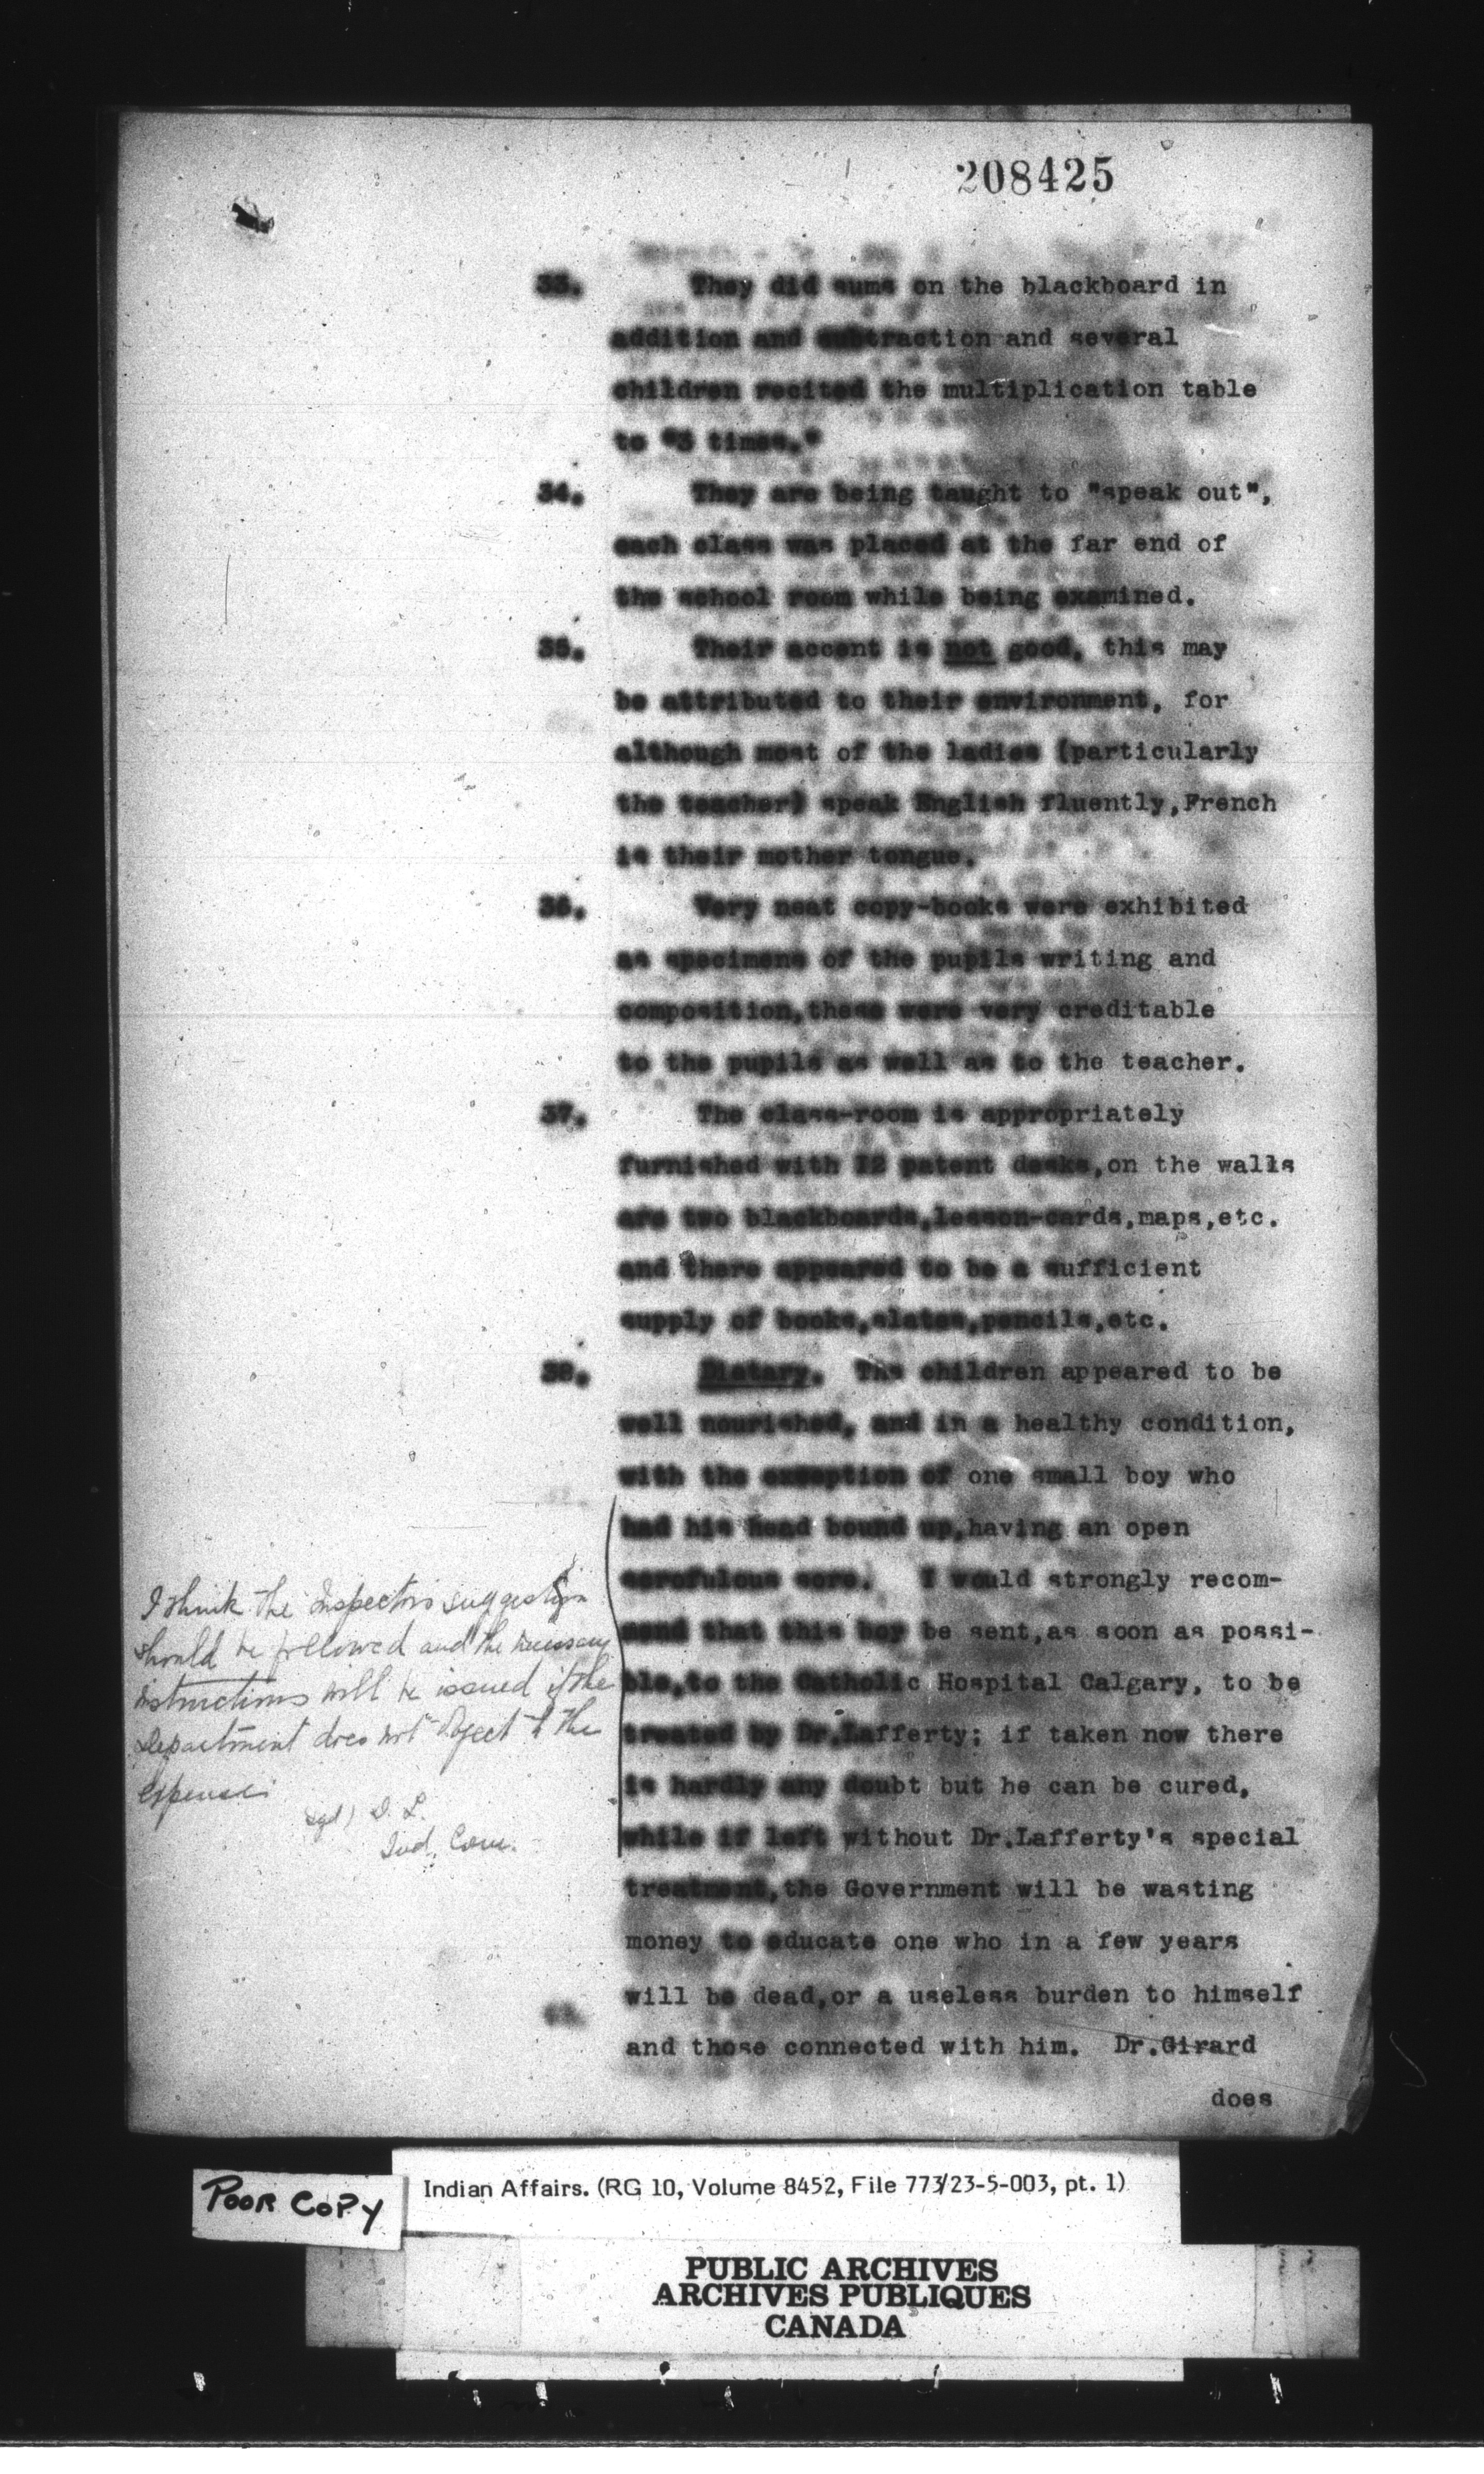 208425
33. They did sums on the blackboard in
addition and subtraction and several
children recited the multiplication table
to "3 times."
34. They are being taught to "speak out",
each class was placed at the far end of
the school room while being examined.
35. Their accent is not good, this may
be attributed to their environment, for
although most of the ladies (particularly
the teacher) speak English fluently,French
is their mother tongue.
36. Very neat copy-books were exhibited
as specimens of the pupils writing and
composition,these were very creditable
to the pupils as well as to the teacher.
37. The class-room is appropriately
furnished with 12 patent desks,on the walls
are two blackboards,lesson-cards,maps,etc.
and there appeared to be a sufficient
supply of books,slates,pencils,etc.
38. Dietary. The children appeared to be
well nourished, and in a healthy condition,
with the exception of one small boy who
had his head bound up,having an open
scrofulous sore. I would strongly recom-
mend that this boy be sent,as soon as possi-
ble,to the Catholic Hospital Calgary, to be
treated by Dr.Lafferty; if taken now there
is hardly any doubt but he can be cured,
while if left without Dr.Lafferty's special
treatment,the Government will be wasting
money to educate one who in a few years
will be dead,or a useless burden to himself
and those connected with him. Dr.Girard
does
I think the Inspectors suggestion
should be followed and the necessary
instructions will be issued if the
Department does not object to the
expense
sgd) D. L.
Ind. Com.
POOR COPY
Indian Affairs. (RG 10, Volume 8452, File 773/23-5-003, pt. 1)
PUBLIC ARCHIVES
ARCHIVES PUBLIQUES
CANADA